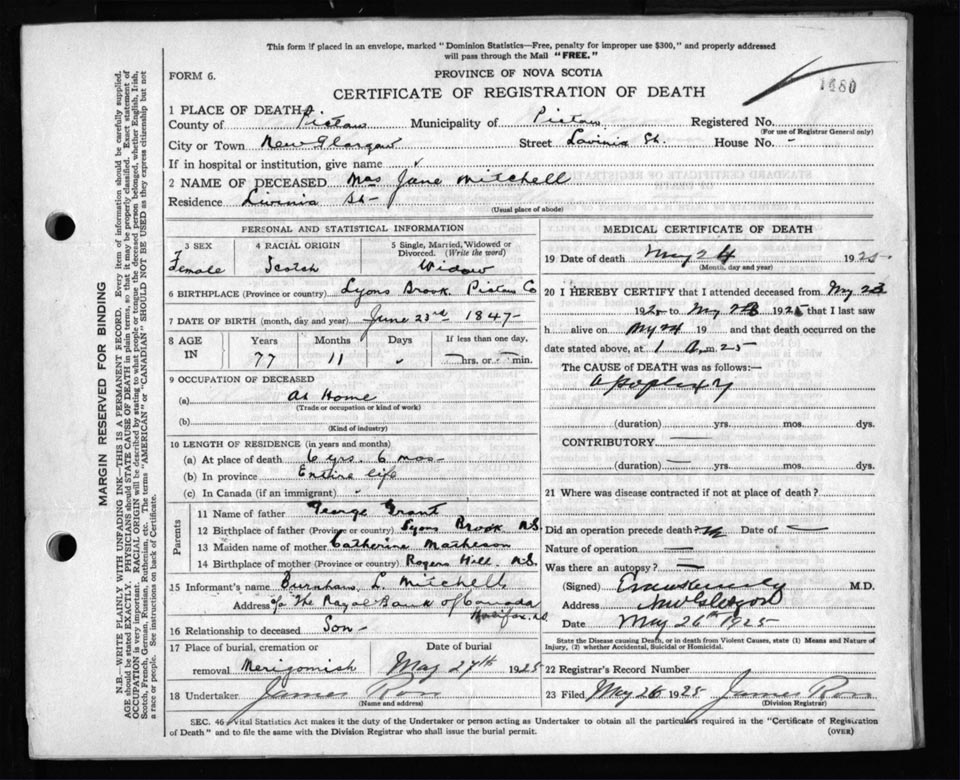 This form if placed in an envelope, marked "Dominion Statistics—Free, penalty for improper use $300," and properly addressed
will pass through the Mail "FREE."
FORM 6.
PROVINCE OF NOVA SCOTIA
1480
CERTIFICATE OF REGISTRATION OF DEATH
1 PLACE OF DEATH
County of Pictou Municipality of Pictou Registered No.
(For use of Registrar General only)
City or Town New Glasgow Street Lavinia St. House No. -
If in hospital or institution, give name
2 NAME OF DECEASED Mrs Jane Mitchell
Residence Livinia St-
(Usual place of abode)
PERSONAL AND STATISTICAL INFORMATION
3 SEX 4 RACIAL ORIGIN 5 Single, Married, Widowed or
Divorced. (Write the word)
Female Scotch Widow
6 BIRTHPLACE (Province or country) Lyons Brook. Pictou Co
7 DATE OF BIRTH (month, day and year) June 23rd 1847-
8 AGE IN Years Months Days If less than one day,
77 11 hrs. or min.
9 OCCUPATION OF DECEASED
(a) At Home
(Trade or occupation or kind of work)
(b)
(Kind of industry)
10 LENGTH OF RESIDENCE (in years and months)
(a) At place of death 6 yrs. 6 mos-
(b) In province Entire life
(c) In Canada (if an immigrant)
Parents
11 Name of father George Grant
12 Birthplace of father (Province or country) Lyons Brook N.S.
13 Maiden name of mother Catherine Matheson
14 Birthplace of mother (Province or country) Rogers Hill. N.S.
15 Informant's name Burnham L. Mitchell
Address c/o The Royal Bank of Canada
Halifax. N.S.
16 Relationship to deceased Son-
17 Place of burial, cremation or Date of burial
removal Merigomish May 27th 1925
18 Undertaker James Ross
(Name and address)
MEDICAL CERTIFICATE OF DEATH
19 Date of death May 24 1925-
(Month, day and year)
20 I HEREBY CERTIFY that I attended deceased from May 23
1925 to May 1925 that I last saw
h alive on May 24 19 and that death occurred on
date stated above, at 1 a.m. 25-
The CAUSE of DEATH was as follows:—
apoplexy
(duration) yrs. mos. dys.
CONTRIBUTORY —
(duration) — yrs. mos. dys.
21 Where was disease contracted if not at place of death?
Did an operation precede death? Date of —
Nature of operation —
Was there an autopsy? —
(Signed) M.D.
Address New Glasgow
Date May 26th 1925
State the Disease causing Death, or in death from Violent Causes, state (1) Means and Nature of
Injury, (2) whether Accidental, Suicidal or Homicidal.
22 Registrar's Record Number
23 Filed May 26 1925 James Ross
(Division Registrar)
SEC. 46 Vital Statistics Act makes it the duty of the Undertaker or person acting as Undertaker to obtain all the particulars required in the "Certificate of Registration
of Death" and to file the same with the Division Registrar who shall issue the burial permit.
(OVER)
MARGIN RESERVED FOR BINDING
N.B.—WRITE PLAINLY WITH UNFADING INK—THIS IS A PERMANENT RECORD. Every item of information should be carefully supplied.
AGE should be stated EXACTLY. PHYSICIANS should STATE CAUSE OF DEATH in plain terms, so that it may be properly classified. Exact statement of
OCCUPATION is very important. RACIAL ORIGIN will be described by stating to what people or tongue the deceased person belonged, whether English, Irish,
Scotch, French, German, Russian, Ruthenian, etc. The terms "AMERICAN" or "CANADIAN" SHOULD NOT BE USED as they express citizenship but not
a race or people. See instructions on back of Certificate.